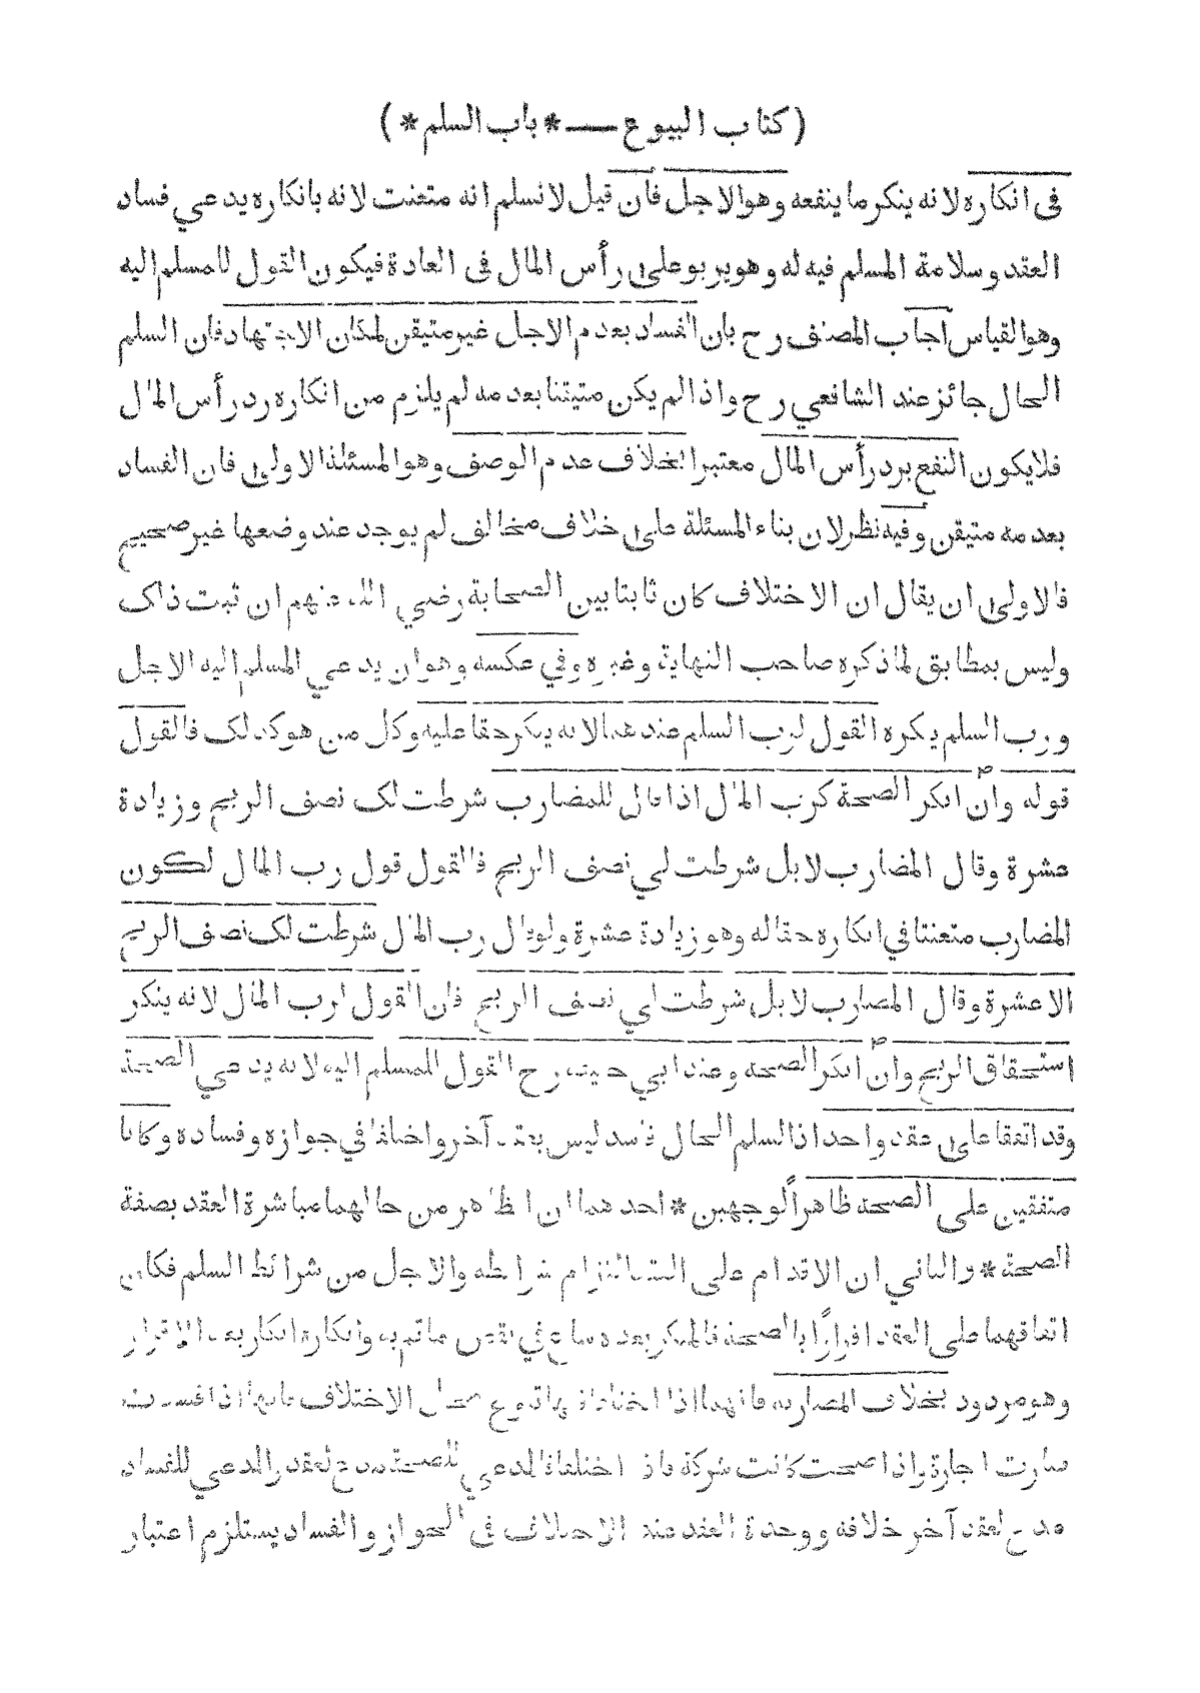 (كتاب البيوع — * باب السلم *)
فى انكاره لانه ينكر ما ينفعه وهو الاجل فان قيل لا نسلم انه متعنت لانه بانكاره يدعي فساد
العقد وسلامة المسلم فيه له وهو يربو على رأس المال فى العادة فيكون القول للمسلم اليه
وهو القياس اجاب المصنف رح بان الفساد بعدم الاجل غير متيقن لمكان الاجتهاد فان السلم
الحال جائز عند الشافعي رح واذا لم يكن متيقنا بعدمه لم يلزم من انكاره رد رأس المال
فلا يكون النفع برد رأس المال معتبرا بخلاف عدم الوصف وهو المسئلة الاولى فان الفساد
بعدمه متيقن وفيه نظر لان بناء المسئلة على خلاف مخالف لم يوجد عند وضعها غير صحيح
فالاولى ان يقال ان الاختلاف كان ثابتا بين الصحابة رضي الله عنهم ان ثبت ذلك
وليس بمطابق لما ذكره صاحب النهاية وغيره وفي عكسه وهو ان يدعي المسلم اليه الاجل
ورب السلم ينكره القول لرب السلم عندهما لانه ينكر حقا عليه وكل من هو كذلك فالقول
قوله وان انكر الصحة كرب المال اذا قال للمضارب شرطت لك نصف الربح وزيادة
عشرة وقال المضارب لا بل شرطت لي نصف الربح فالقول قول رب المال لكون
المضارب متعنتا في انكاره حقا له وهو زيادة عشرة ولو قال رب المال شرطت لك نصف الربح
الا عشرة وقال المضارب لا بل شرطت لي نصف الربح فان القول لرب المال لانه ينكر
استحقاق الربح وان انكر الصحة وعند ابي حنيفة رح القول للمسلم اليه لانه يدعي الصحة
وقد اتفقا على عقد واحد اذ السلم الحال فاسد ليس بعقد آخر واختلفا في جوازه وفساده وكانا
متفقين على الصحة ظاهراً لوجهين * احدهما ان الظاهر من حالهما مباشرة العقد بصفة
الصحة * والثاني ان الاقدام على العقد التزام شرائطه والاجل من شرائط السلم فكان
اتفاقهما على العقد اقراراً بالصحة فالمنكر بعده ساع في نقض ما تم به وانكاره انكار بعد الاقرار
وهو مردود بخلاف المضاربة فانهما اذا اختلفا فيها تنوع محل الاختلاف فانها اذا فسدت
صارت اجارة واذا صحت كانت شركة فاذا اختلفا فالمدعي للصحة مدع لعقد والمدعي للفساد
مدع لعقد آخر خلافه ووحدة العقد عند الاختلاف فى الجواز والفساد يستلزم اعتبار